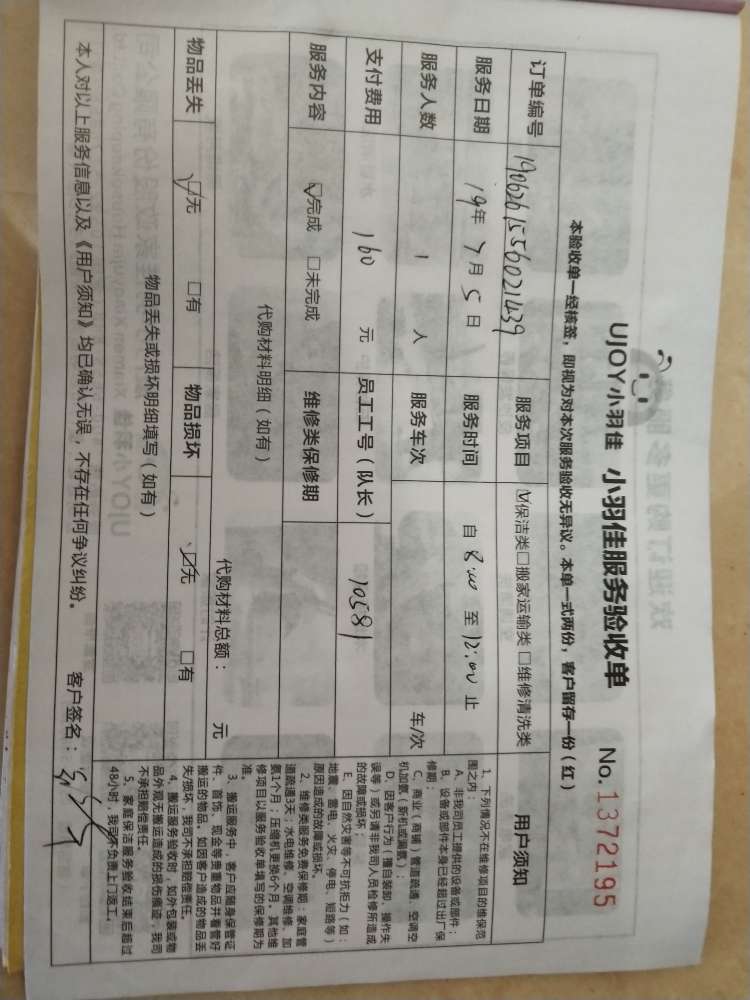 UJOY小羽佳 小羽佳服务验收单 No. 1372195
本验收单一经核签，即视为对本次服务验收无异议。本单一式两份，客户留存一份（红）
订单编号 1906261556021439 服务项目 ☑保洁类□搬家运输类□维修清洗类
服务日期 19年 7月 5日 服务时间 自 8:00 至 12:00 止
服务人数 1 人 服务车次 车/次
支付费用 160 元 员工工号（队长） 10581
服务内容 ☑完成 □未完成 维修类保修期
代购材料明细（如有）
代购材料总额： 元
物品丢失 ☑无 □有 物品损坏 ☑无 □有
物品丢失或损坏明细填写（如有）
本人对以上服务信息以及《用户须知》均已确认无误，不存在任何争议纠纷。 客户签名：
用户须知
1、下列情况不在维修项目的维保范
围之内：
A、非我司员工提供的设备或部件；
B、设备或部件本身已经超过出厂保
修期；
C、商业（商铺）管道疏通、空调空
机加氨（新机或漏氨）；
D、因客户行为（擅自装卸、操作失
误等）或另请非我司人员检修所造成
的故障或损坏；
E、因自然灾害等不可抗拒力（如：
地震、雷电、火灾、停电、短路等）
原因造成的故障或损坏。
2、维修类服务免费保修期：家庭管
道疏通3天；水电维修、空调维修、加
氨1个月；压缩机更换6个月。其他维
修项目以服务验收单填写的保修期为
准。
3、搬运服务中，客户应随身保管证
件、首饰、现金等贵重物品并看管好
搬运的物品。如因客户造成的物品丢
失/损坏，我司不承担赔偿责任。
4、搬运服务验收时，如外包装或物
品外观无搬运造成的损伤痕迹，我司
不承担赔偿责任。
5、家庭保洁服务验收结束后超过
48小时，我司不负责上门返工。